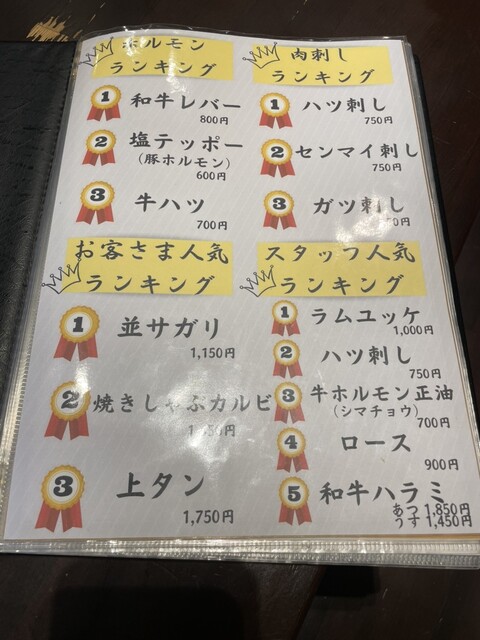 ホルモン
ランキング
1 和牛レバー
800円
2 塩テッポー
(豚ホルモン)
600円
3 牛ハツ
700円
肉刺し
ランキング
1 ハツ刺し
750円
2 センマイ刺し
750円
3 ガツ刺し
0円
お客さま人気
ランキング
1 並サガリ
1,150円
2 焼きしゃぶカルビ
50円
3 上タン
1,750円
スタッフ人気
ランキング
1 ラムユッケ
1,000円
2 ハツ刺し
750円
3 牛ホルモン正油
(シマチョウ)
700円
4 ロース
900円
5 和牛ハラミ
あつ 1,850円
うす 1,450円